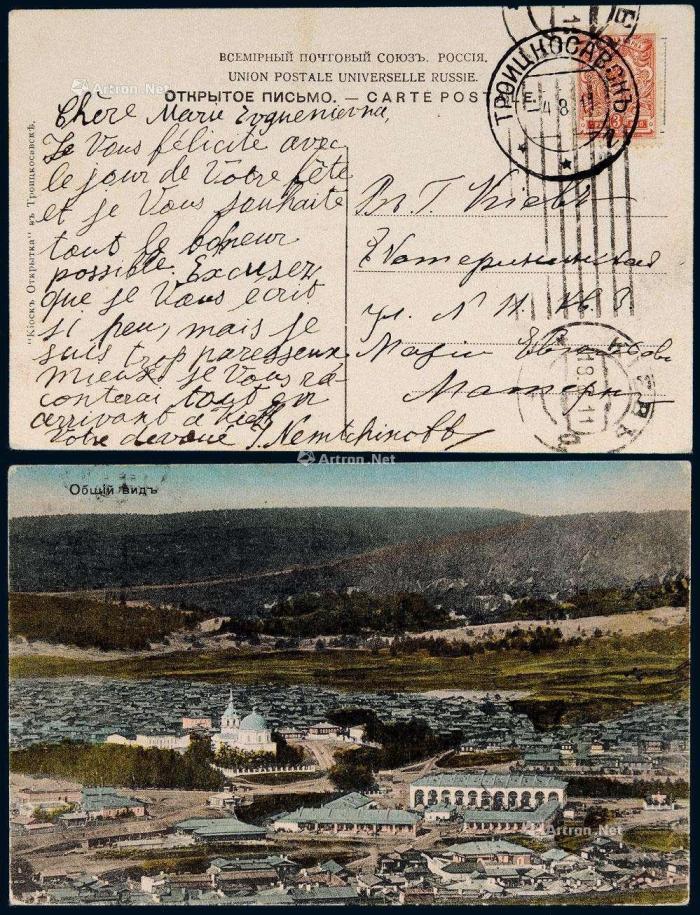 ВСЕМІРНЫЙ ПОЧТОВЫЙ СОЮЗЪ. РОССІЯ.
UNION POSTALE UNIVERSELLE RUSSIE.
ОТКРЫТОЕ ПИСЬМО. — CARTE POSTALE.
ТРОИЦКОСАВСКЪ
-4.8.11
"Кіоскъ Открытка" въ Троицкосавскѣ.
Chère Marie Evguenievna,
Je Vous félicite avec
le jour de Votre fête
et je Vous souhaite
tout le boheur
possible. Excusez
que je Vous écrit
si peu, mais je
suis trop paresseux
mieux je Vous ra-
conterai tout en
arrivant à Kieff
Votre dévoué J. Nemtchinoff
Въ Г. Кіевъ
Екатерининская
ул. N 11. кв. 3
Маріи
Artron.Net
Artron.Net
Artron.Net
Общій видъ
Artron.Net
Artron.Net